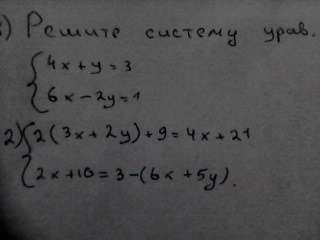 ) Решите систему урав.
4x+y=3
6x-2y=1
2) 2(3x+2y)+9=4x+21
2x+10=3-(6x+5y).